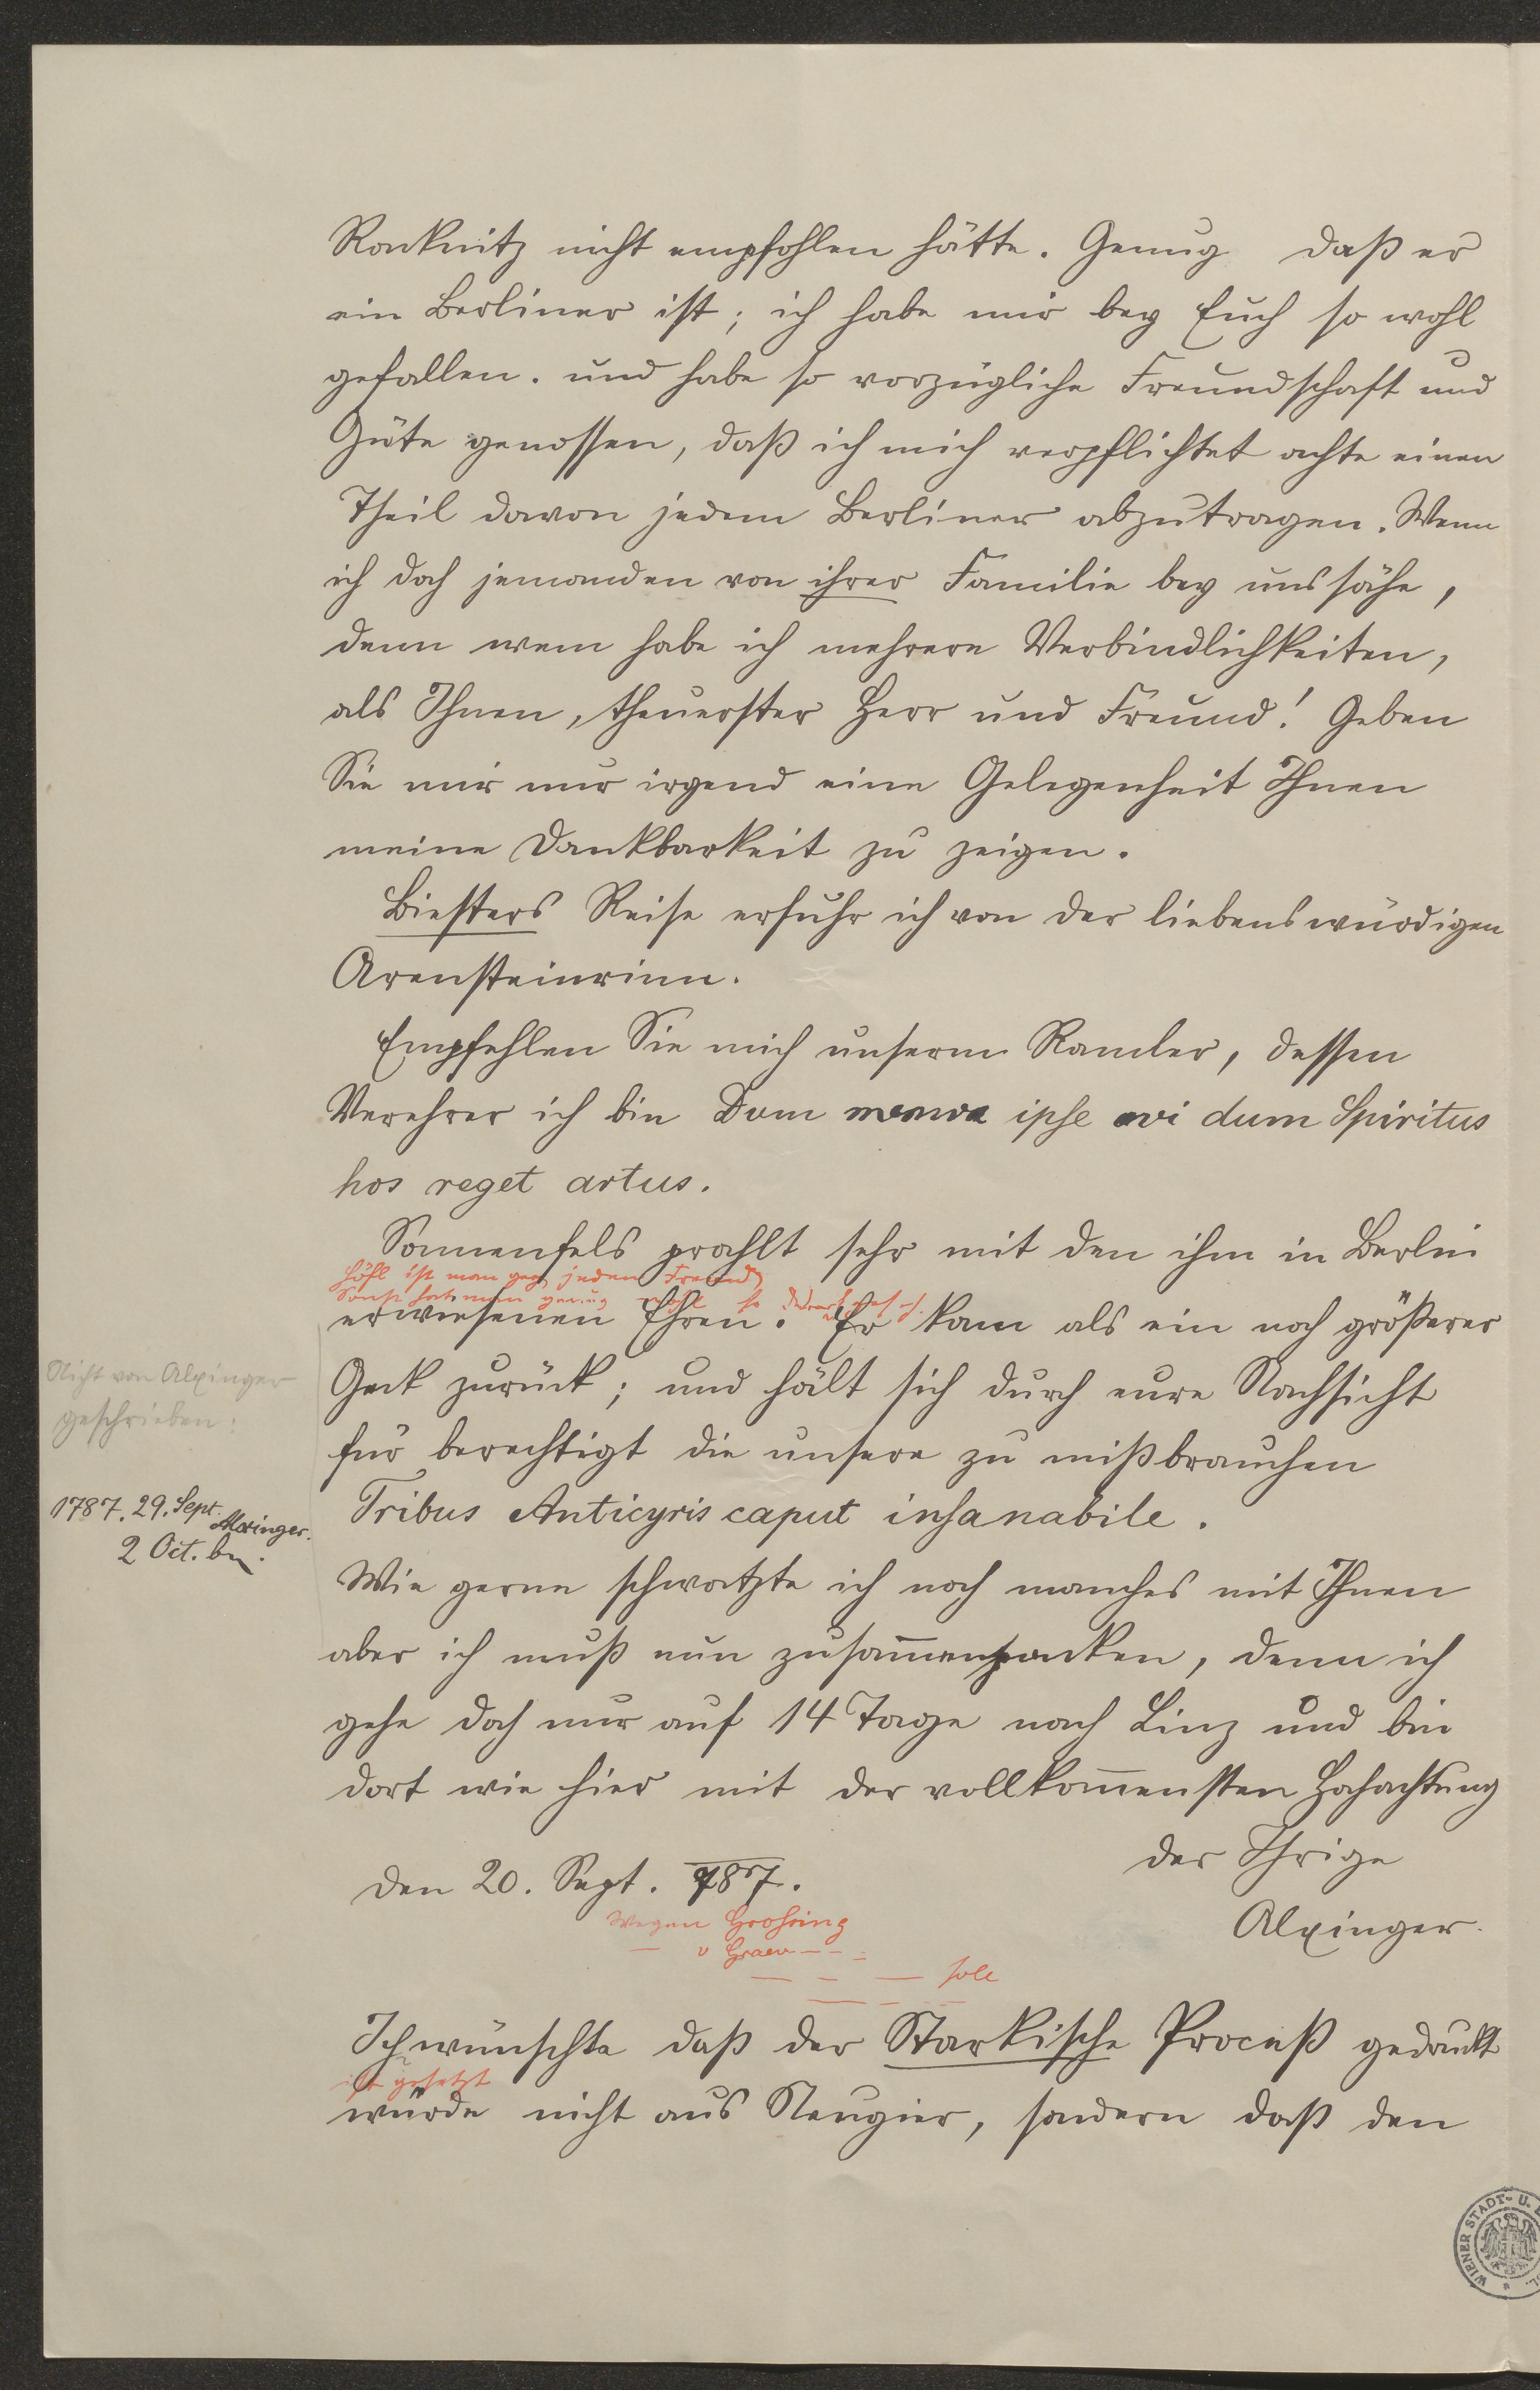 Racknitz nicht empfohlen hätte. Genug daß er
ein Berliner ist; ich habe mir bey Euch so wohl
gefallen. und habe so vorzügliche Freundschaft und
Güte genossen, daß ich mich verpflichtet achte einen
Theil davon jedem Berliner abzutragen. Wenn
ich doch jemanden von ihrer Familie bey uns sähe,
denn wem habe ich mehrere Verbindlichkeiten,
als Ihnen, theuerster Herr und Freund! Geben
Sie mir nur irgend eine Gelegenheit Ihnen
meine Dankbarkeit zu zeigen.
Biesters Reise erfuhr ich von der liebenswürdigen
Arensteinerinn.
Empfehlen Sie mich unserm Ramler, dessen
Verehrer ich bin Dum ipse dum Spiritus
hos reget artus.
Sonnenfels prahlt sehr mit den ihm in Berlin
Höfl ist man geg jeden Fremd
Sonst hat man genug wohl so
erwiesenen Ehren. Er kam als ein noch größerer
Geck zurück; und hält sich durch eure Nachsicht
für berechtigt die unsere zu mißbrauchen
Tribus Anticyris caput insanabile.
Nicht von Alxinger
geschrieben:
1787. 29. Sept. Alxinger.
2 Oct. bn.
Wie gerne schwatzte ich noch manches mit Ihnen
aber ich muß nun zusam̅enpacken, denn ich
gehe doch nur auf 14 Tage nach Linz und bin
dort wie hier mit der vollkom̅ensten Hochachtung
der Ihrige
den 20. Sept. 787.
Alxinger.
Wegen Grossing
— v Graev — — :
— — — solle
Ich wünschte daß der Starkische Proceß gedruckt
ist gesetzt
würde nicht aus Neugier, sondern daß den
WIENER STADT- U.